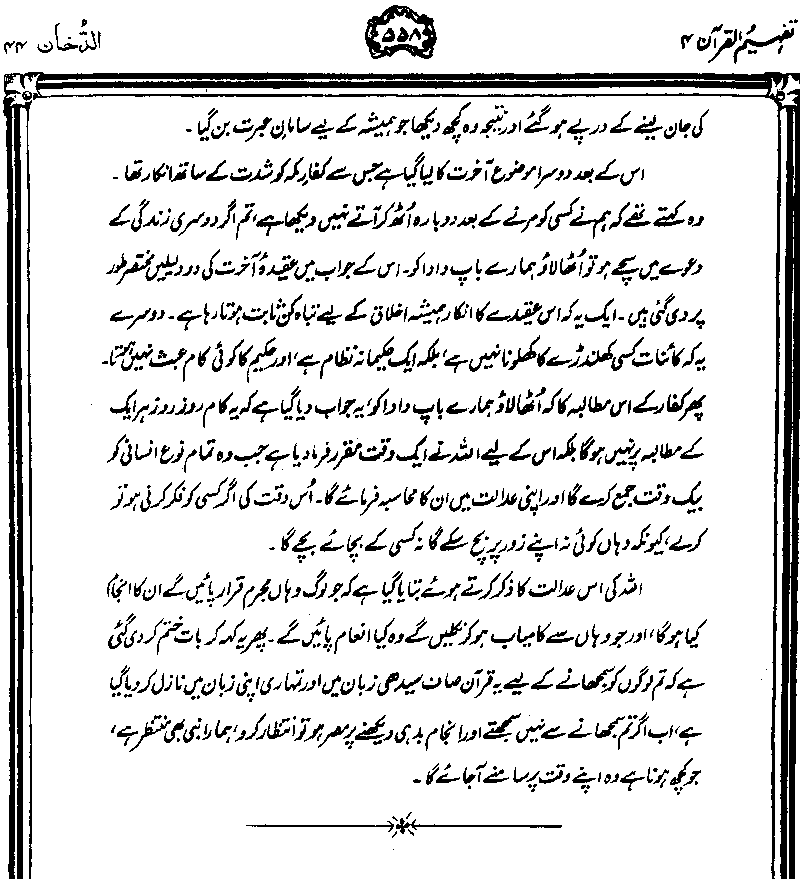 تفہیم القرآن ۴
۵۵۸
الدُّخان ۴۴
کی جان لینے کے درپے ہو گئے اور نتیجہ وہ کچھ دیکھا جو ہمیشہ کے لیے سامانِ عبرت بن گیا۔
اس کے بعد دوسرا موضوع آخرت کا لیا گیا ہے جس سے کفارِ مکہ کو شدت کے ساتھ انکار تھا۔
وہ کہتے تھے کہ ہم نے کسی کو مرنے کے بعد دوبارہ اُٹھ کر آتے نہیں دیکھا ہے، تم اگر دوسری زندگی کے
دعوے میں سچے ہو تو اُٹھا لاؤ ہمارے باپ دادا کو۔ اس کے جواب میں عقیدۂ آخرت کی دو دلیلیں مختصر طور
پر دی گئی ہیں۔ ایک یہ کہ اس عقیدے کا انکار ہمیشہ اخلاق کے لیے تباہ کن ثابت ہوتا رہا ہے۔ دوسرے
یہ کہ کائنات کسی کھلنڈرے کا کھلونا نہیں ہے، بلکہ ایک حکیمانہ نظام ہے، اور حکیم کا کوئی کام عبث نہیں ہوتا۔
پھر کفار کے اس مطالبہ کا کہ اُٹھا لاؤ ہمارے باپ دادا کو، یہ جواب دیا گیا ہے کہ یہ کام روز روز ہر ایک
کے مطالبہ پر نہیں ہوگا بلکہ اس کے لیے اللہ نے ایک وقت مقرر فرما دیا ہے جب وہ تمام نوعِ انسانی کو
بیک وقت جمع کرے گا اور اپنی عدالت میں ان کا محاسبہ فرمائے گا۔ اُس وقت کی اگر کسی کو فکر کرنی ہو تو
کرلے، کیونکہ وہاں کوئی نہ اپنے زور پر بچ سکے گا نہ کسی کے بچائے بچے گا۔
اللہ کی اس عدالت کا ذکر کرتے ہوئے بتایا گیا ہے کہ جو لوگ وہاں مجرم قرار پائیں گے ان کا انجام
کیا ہوگا، اور جو وہاں سے کامیاب ہو کر نکلیں گے وہ کیا انعام پائیں گے۔ پھر یہ کہہ کر بات ختم کر دی گئی
ہے کہ تم لوگوں کو سمجھانے کے لیے یہ قرآن صاف سیدھی زبان میں اور تمہاری اپنی زبان میں نازل کر دیا گیا
ہے، اب اگر تم سمجھانے سے نہیں سمجھتے اور انجام بد ہی دیکھنے پر مصر ہو تو انتظار کرو، ہمارا نبی بھی منتظر ہے،
جو کچھ ہونا ہے وہ اپنے وقت پر سامنے آ جائے گا۔